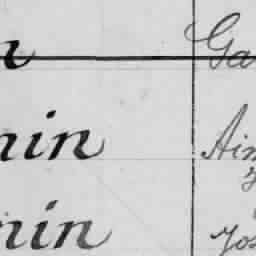 n Ga
nin Aim
nin Jos